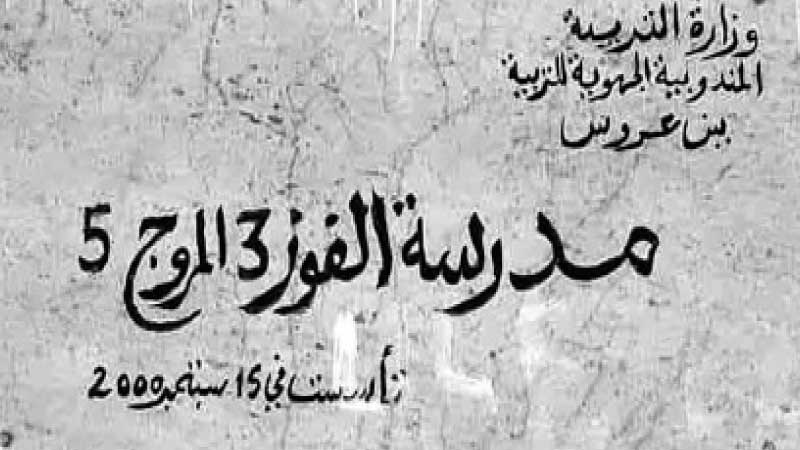 وزارة التربية
المندوبية الجهوية للتربية
بن عروس
مدرسة الفوز 3 المروج 5
تأسست في 15 سبتمبر 2000